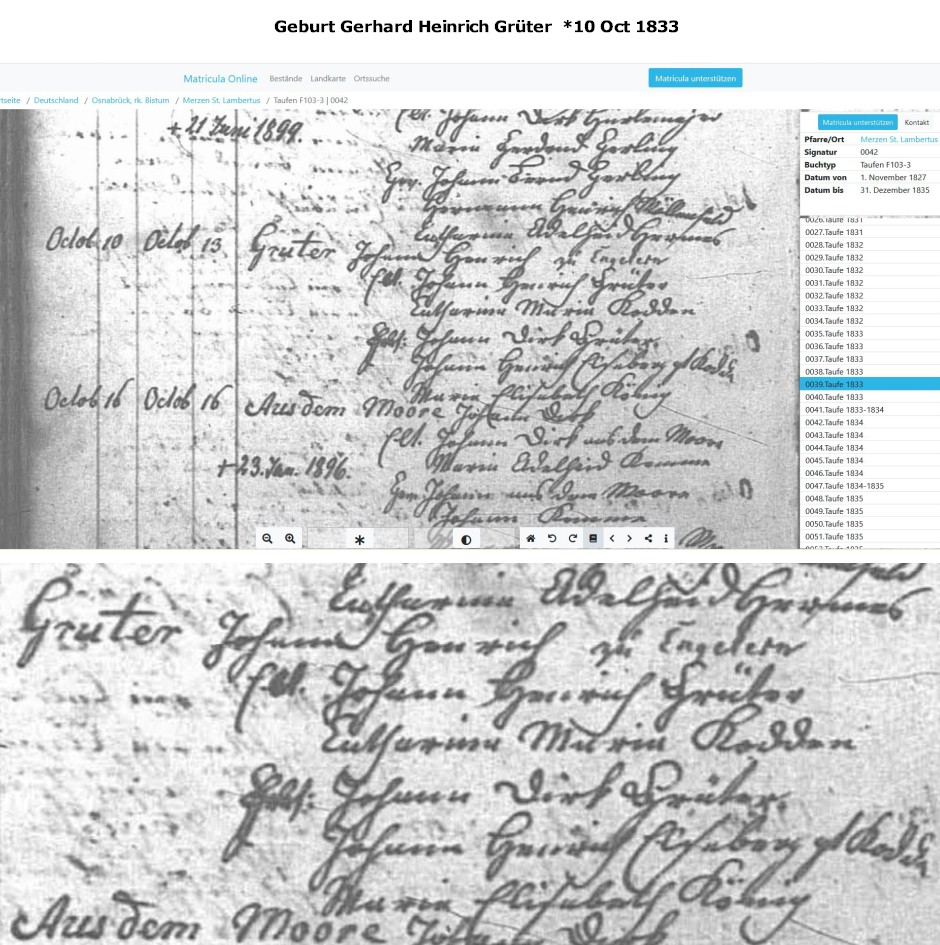 Geburt Gerhard Heinrich Grüter *10 Oct 1833
Matricula Online Bestände Landkarte Ortssuche
Matricula unterstützen
rtseite / Deutschland / Osnabrück, rk. Bistum / Merzen St. Lambertus / Taufen F103-3 | 0042
Matricula unterstützen Kontakt
Pfarre/Ort Merzen St. Lambertus
Signatur 0042
Buchtyp Taufen F103-3
Datum von 1. November 1827
Datum bis 31. Dezember 1835
0026.Taufe 1831
0027.Taufe 1831
0028.Taufe 1832
0029.Taufe 1832
0030.Taufe 1832
0031.Taufe 1832
0032.Taufe 1832
0033.Taufe 1832
0034.Taufe 1832
0035.Taufe 1833
0036.Taufe 1833
0037.Taufe 1833
0038.Taufe 1833
0039.Taufe 1833
0040.Taufe 1833
0041.Taufe 1833-1834
0042.Taufe 1834
0043.Taufe 1834
0044.Taufe 1834
0045.Taufe 1834
0046.Taufe 1834
0047.Taufe 1834-1835
0048.Taufe 1835
0049.Taufe 1835
0050.Taufe 1835
0051.Taufe 1835
Johann Dirk
+ 21 Juni 1899.
Maria Gerdrud Gerling
Johann Bernd Gerling
Hermann Henrich
Catharina Adelheid Hermes
Octob 10 Octob 13 Gruter Johann Henrich zu Engelern
Elt. Johann Henrich Grüter
Catharina Maria Kodden
Johann Dirk Grüter.
Johann Henrich
Maria Elisabeth König
Octob 16 Octob 16 Aus dem Moore Johann Dirk
Elt. Johann Dirk aus dem Moore
Maria Adelheid
+ 23. Jan. 1896.
Johann aus dem Moore
Johann
Catharina Adelheid Hermes
Gruter Johann Henrich zu Engelern
Elt. Johann Henrich Grüter
Catharina Maria Kodden
Johann Dirk Grüter.
Johann Henrich
Maria Elisabeth König
Aus dem Moore Johann Dirk